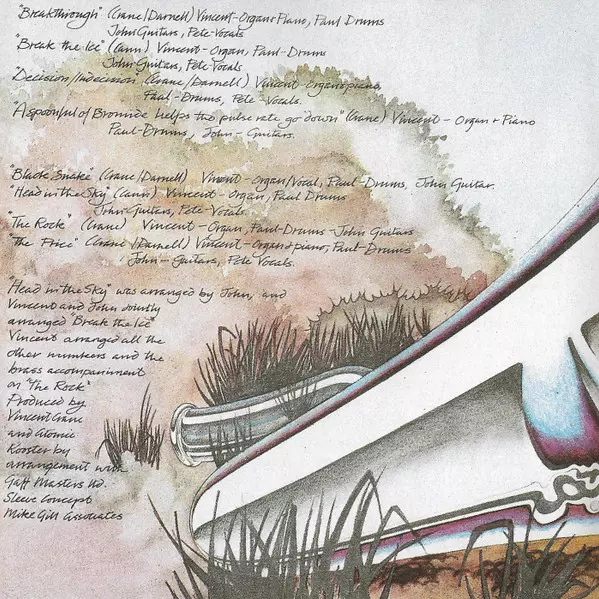 "Breakthrough" (Crane/Darnell) Vincent-Organ+Piano, Paul Drums
John Guitars, Pete-Vocals
"Break the Ice" (Cann) Vincent-Organ, Paul-Drums
John-Guitars, Pete Vocals
"Decision/Indecision" (Crane/Darnell) Vincent-Organ+piano,
Paul-Drums, Pete Vocals.
"A spoonful of Bromide helps the pulse rate go down" (Crane) Vincent - Organ + Piano
Paul-Drums, John-Guitars.
"Black Snake" (Crane/Darnell) Vincent-Organ/Vocal, Paul-Drums, John Guitar.
"Head in the Sky" (Cann) Vincent-Organ, Paul Drums
John-Guitars, Pete-Vocals.
"The Rock" (Crane) Vincent-Organ, Paul-Drums-John Guitars
"The Price" (Crane/Darnell) Vincent-Organ+piano, Paul-Drums
John-Guitars, Pete Vocals.
"Head in the Sky" was arranged by John, and
Vincent and John jointly
arranged "Break the Ice"
Vincent arranged all the
other numbers and the
brass accompaniment
on "The Rock"
Produced by
Vincent Crane
and Atomic
Rooster by
arrangement with
Gaff Masters Ltd.
Sleeve Concept
Mike Gill Associates